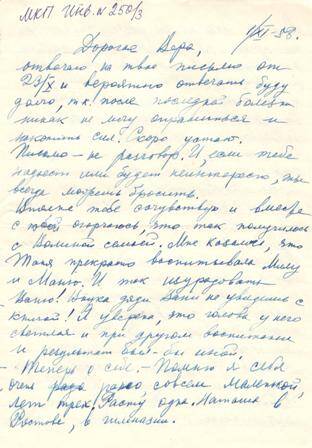 МКП Инв. N 250/3
1/XI-58.
Дорогая Вера,
отвечаю на твое письмо от
23/X и вероятно отвечать буду
долго, т.к. после последней болезни
никак не могу оправиться и
накопить сил. Скоро устаю.
Письмо – не разговор. И, если тебе
надоест или будет неинтересно, ты
всегда можешь бросить.
Вполне тебе сочувствую и вместе
с тобой огорчаюсь, что так получилось
с Ваниной семьей. Мне казалось, что
Таня прекрасно воспитывала Милу
и Маню. И так изуродовать
Ваню! Внука дяди Вани не увидишь с
книгой! А уверена, что голова у него
светлая и при другом воспитании
и результат был-бы иной.
- Теперь о себе. - Помню я себя
очень рано, совсем маленькой,
лет трех. Расту одна. Наташа в
Ростове, в гимназии.